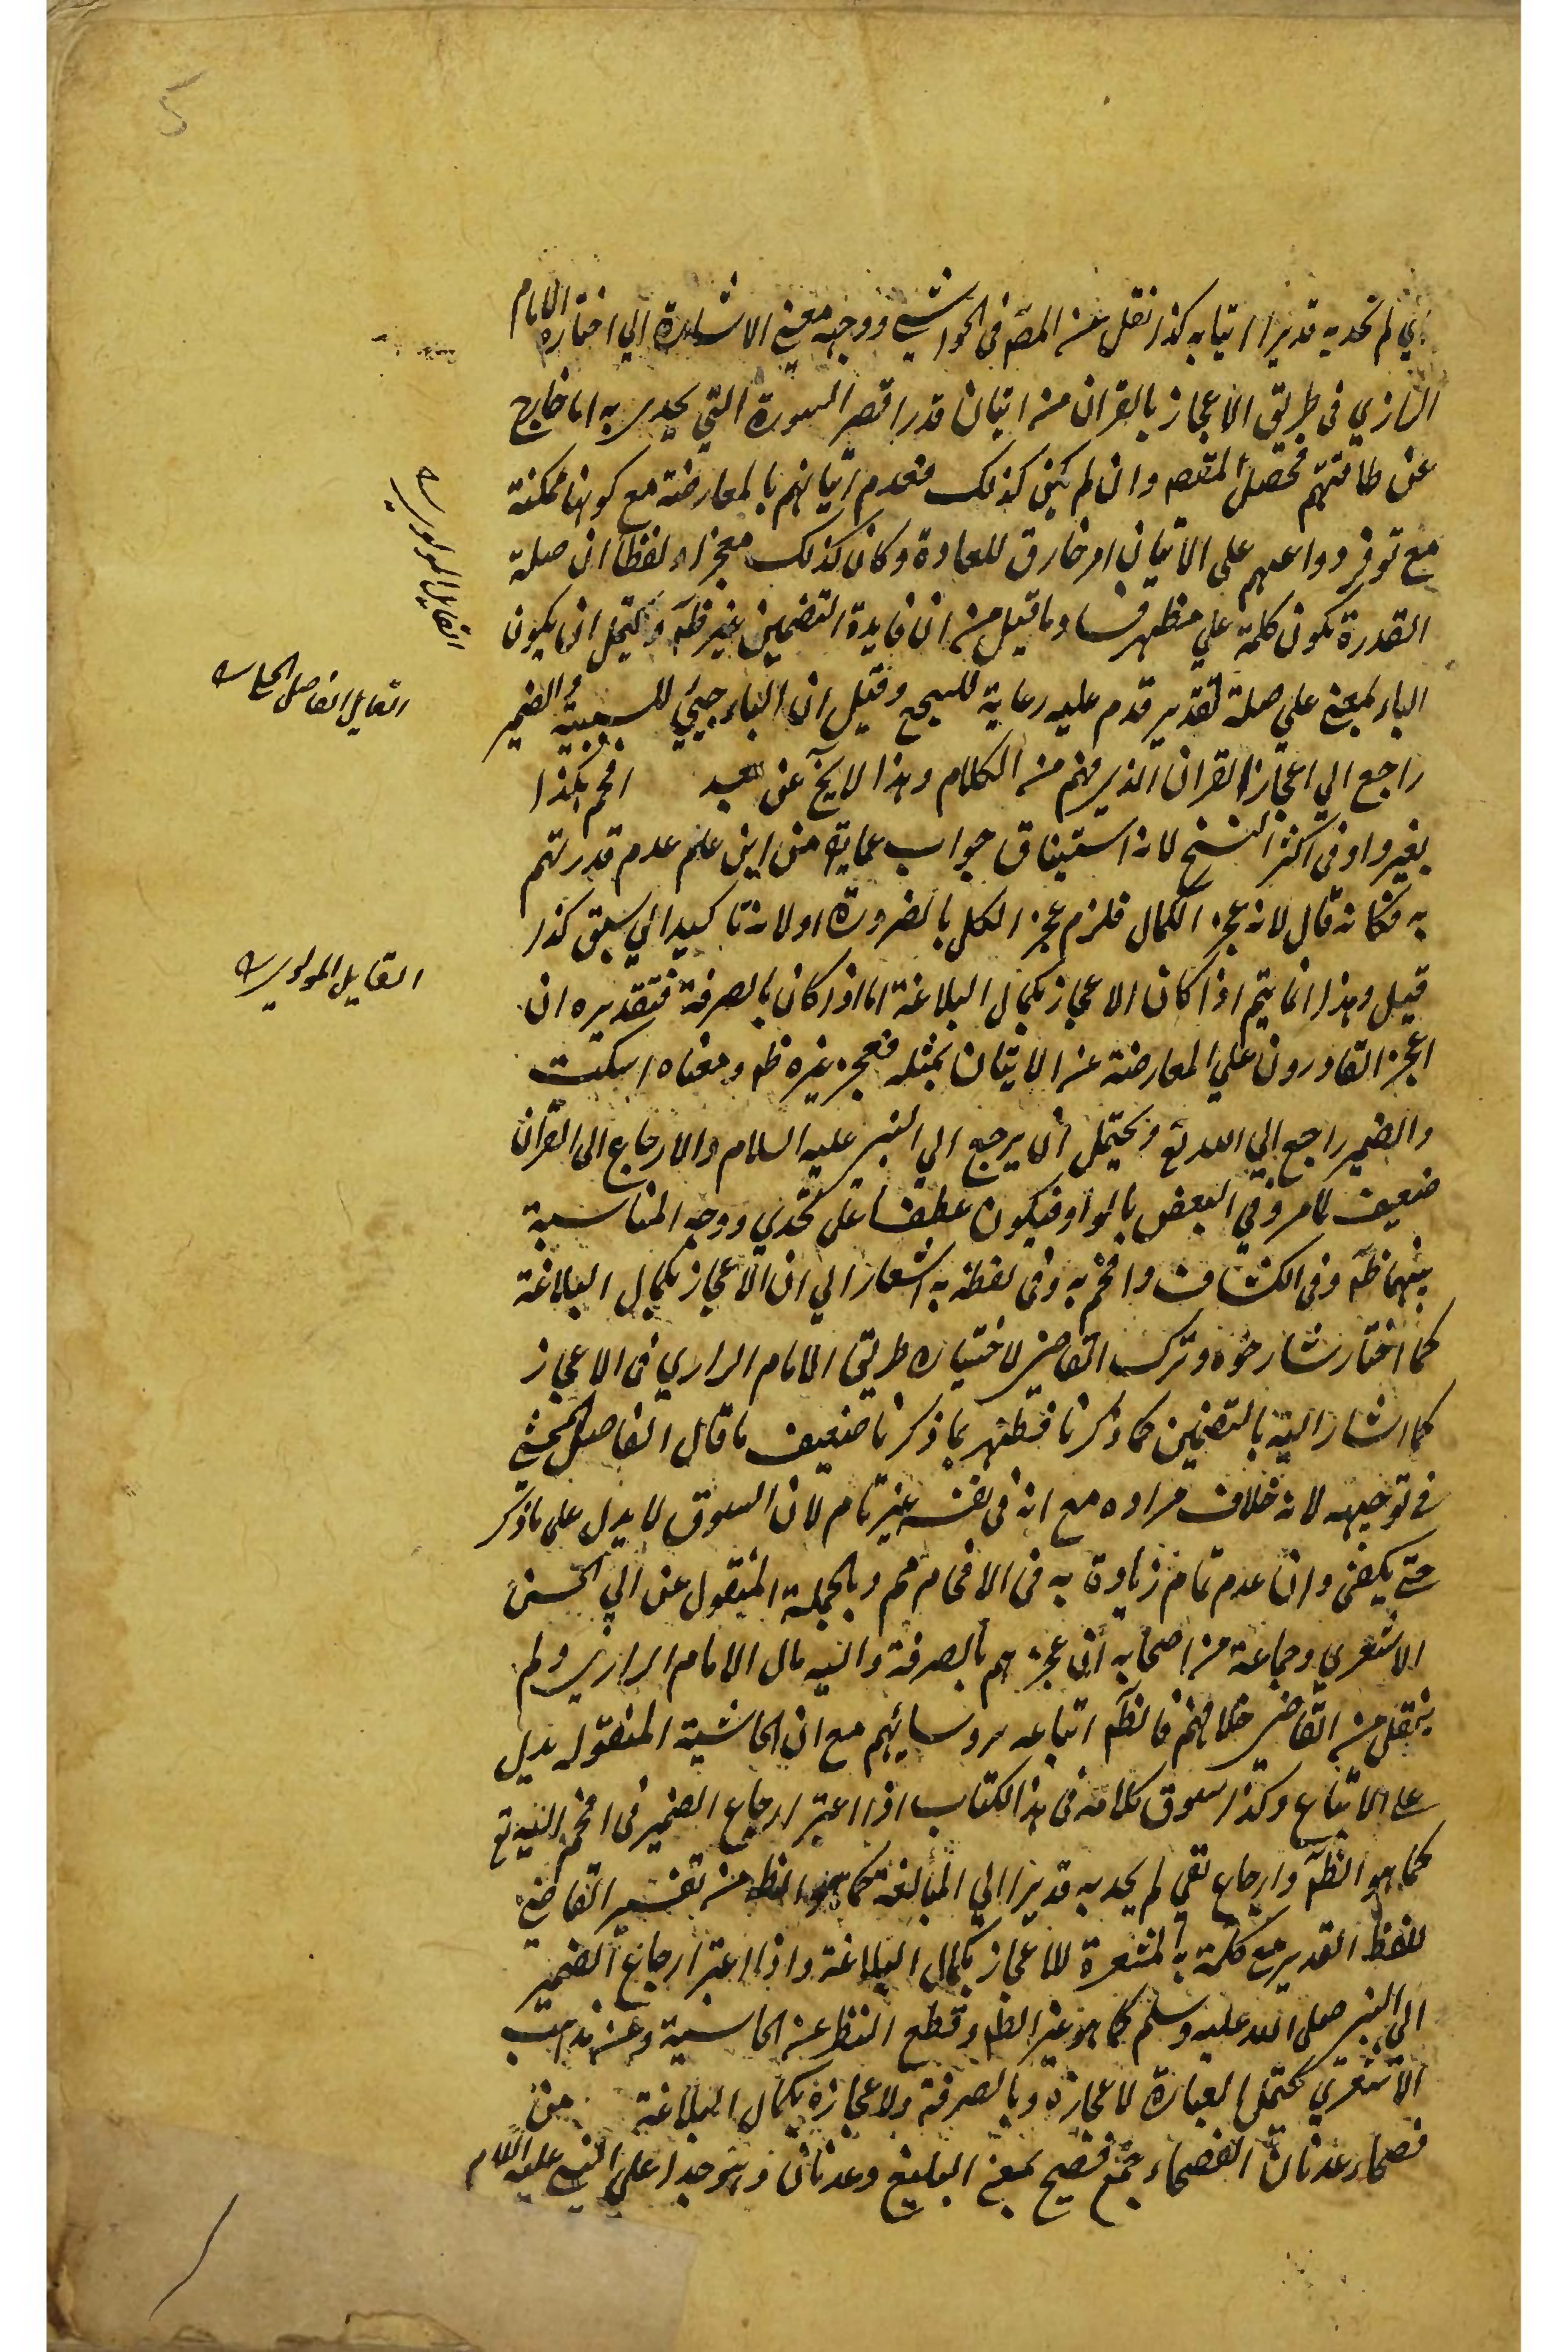 5
اي لم نجد به قديرا اتيا به كذا نقل عن المصـ في الحواشي ووجهه معنى الاشارة الي اختاره الامام
الرازي في طريق الاعجاز بالقران من اتيان قدر اقصر السورة التي يحدى به اما خارج
عن طاقتهم فحصل المقصـ وان لم يكن كذلك فعدم اتيانهم بالمعارضة مع كونها ممكنة
مع توفر دواعيهم على الاتيان امر خارق للعادة وكان كذلك معجزا ولفظا ان صلة
القدرة تكون كلمة علي فظهر فساد ما قيل من ان فايدة التضمين غير ظـ ويحتمل ان يكون
الباء بمعنى علي صلة لقدير قدم عليه رعاية للسجع وقيل ان الباء جيئ للسببية والضمير
راجع الي اعجاز القران الذي فهم من الكلام وهذا لا يخ عن بعد افحم هكذا
بغير واو في اكثر النسخ لانه استيناف جواب عما يق من اين علم عدم قدرتهم
به فكانه قال لانه عجز الكمال فلزم عجز الكل بالضرورة او لانه تاكيد الي سبق كذا
قيل وهذا انما يتم اذا كان الاعجاز بكمال البلاغة اما اذا كان بالصرفة فتقديره ان
اعجز القادرون علي المعارضة عن الاتيان بمثله فعجز غيره ظـ ومعناه اسكت
والضمير راجع الي الله تع ويحتمل ان يرجع الي النبي عليه السلام والارجاع الى القران
ضعيف كما مر وفي البعض بالواو فيكون عطفا على تحدي ووجه المناسبة
بينهما ظـ وفي الكشاف وافحم به وفي لفظة به اشعار الي ان الاعجاز بكمال البلاغة
كما اختار شارحوه وترك القاضي لاختياره طريق الامام الرازي في الاعجاز
كما اشار اليه بالتضمين كما ذكرنا فظهر بما ذكرنا ضعيف ما قال الفاضل المحشي
في توجيهه لانه خلاف مراده مع انه في نفسه غير تام لان السوق لا يدل على ما ذكر
حتى يكفى وان عدم تمام زيادة به في الافحام مم وبالجملة المنقول عن ابي الحسن
الاشعري وجماعة من اصحابه ان عجزهم بالصرفة واليه مال الامام الرازي ولم
ينقل من القاضي خلافهم فالظـ اتباعه روسائهم مع ان الحاشية المنقوله يدل
على الاتباع وكذا سوق كلامه في هذا الكتاب اذا اعتبر ارجاع الضمير في افحم اليه تع
كما هو الظـ وارجاع نفي لم يجد به قديرا الي المبالغة كما هو الظـ من تفسير القاضي
للفظ القدير مع كلمة به المشعرة للاعجاز بكمال البلاغة واذا اعتبر ارجاع الضمير
الي النبي صلى الله عليه وسلم كما هو غير الظـ وقطع النظر عن الحاشية وعن مذهب
الاشعري يحتمل العبارة لاعجازه وبالصرفة ولاعجازه بكمال البلاغة من
فصحاء عدنان الفصحاء جمع فصيح بمعنى البليغ وعدنان هو جد اعلي النبي عليه السلام
القايل المولوي
القايل الفاضل
القايل المولوي